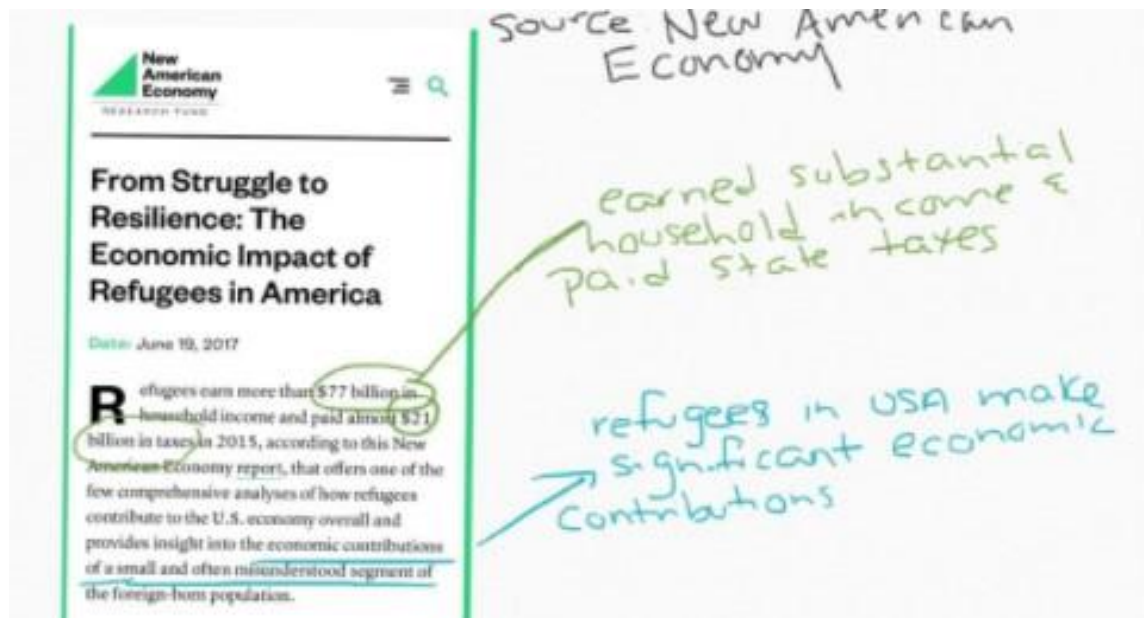 source New American
Economy
New
American
Economy
RESEARCH FUND
From Struggle to
Resilience: The
Economic Impact of
Refugees in America
Date: June 19, 2017
Refugees earn more than $77 billion in
household income and paid almost $21
billion in taxes in 2015, according to this New
American Economy report, that offers one of the
few comprehensive analyses of how refugees
contribute to the U.S. economy overall and
provides insight into the economic contributions
of a small and often misunderstood segment of
the foreign-born population.
earned substantial
household income &
paid state taxes
refugees in USA make
significant economic
contributions